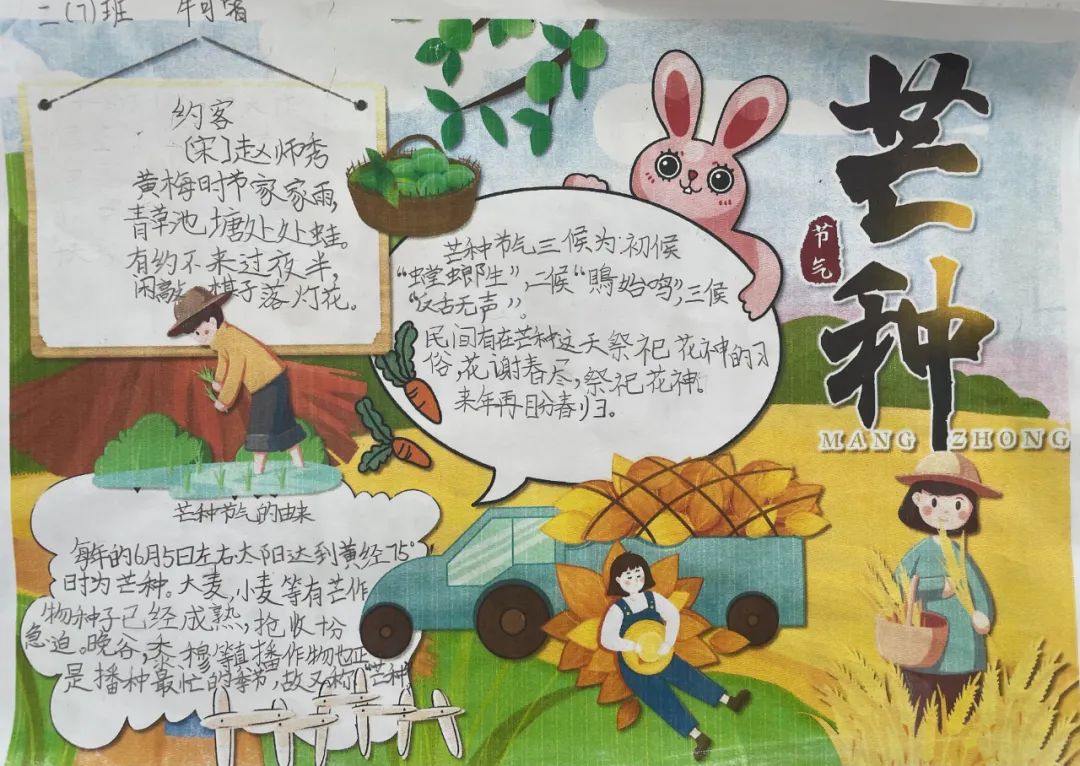 二(7)班
约客
[宋]赵师秀
黄梅时节家家雨,
青草池塘处处蛙。
有约不来过夜半,
闲敲棋子落灯花。
芒种
节气
MANG ZHONG
芒种节气三候为:初候
“螳螂生”,二候“鵙始鸣”,三候
“反舌无声”。
民间有在芒种这天祭祀花神的习
俗,花谢春尽,祭祀花神.
来年再盼春归。
芒种节气的由来
每年的6月5日左右太阳达到黄经75°
时为芒种。大麦,小麦等有芒作
物种子已经成熟,抢收十分
急迫。晚谷,黍穆等播作物也正
是播种最忙的季节,故又称“芒种